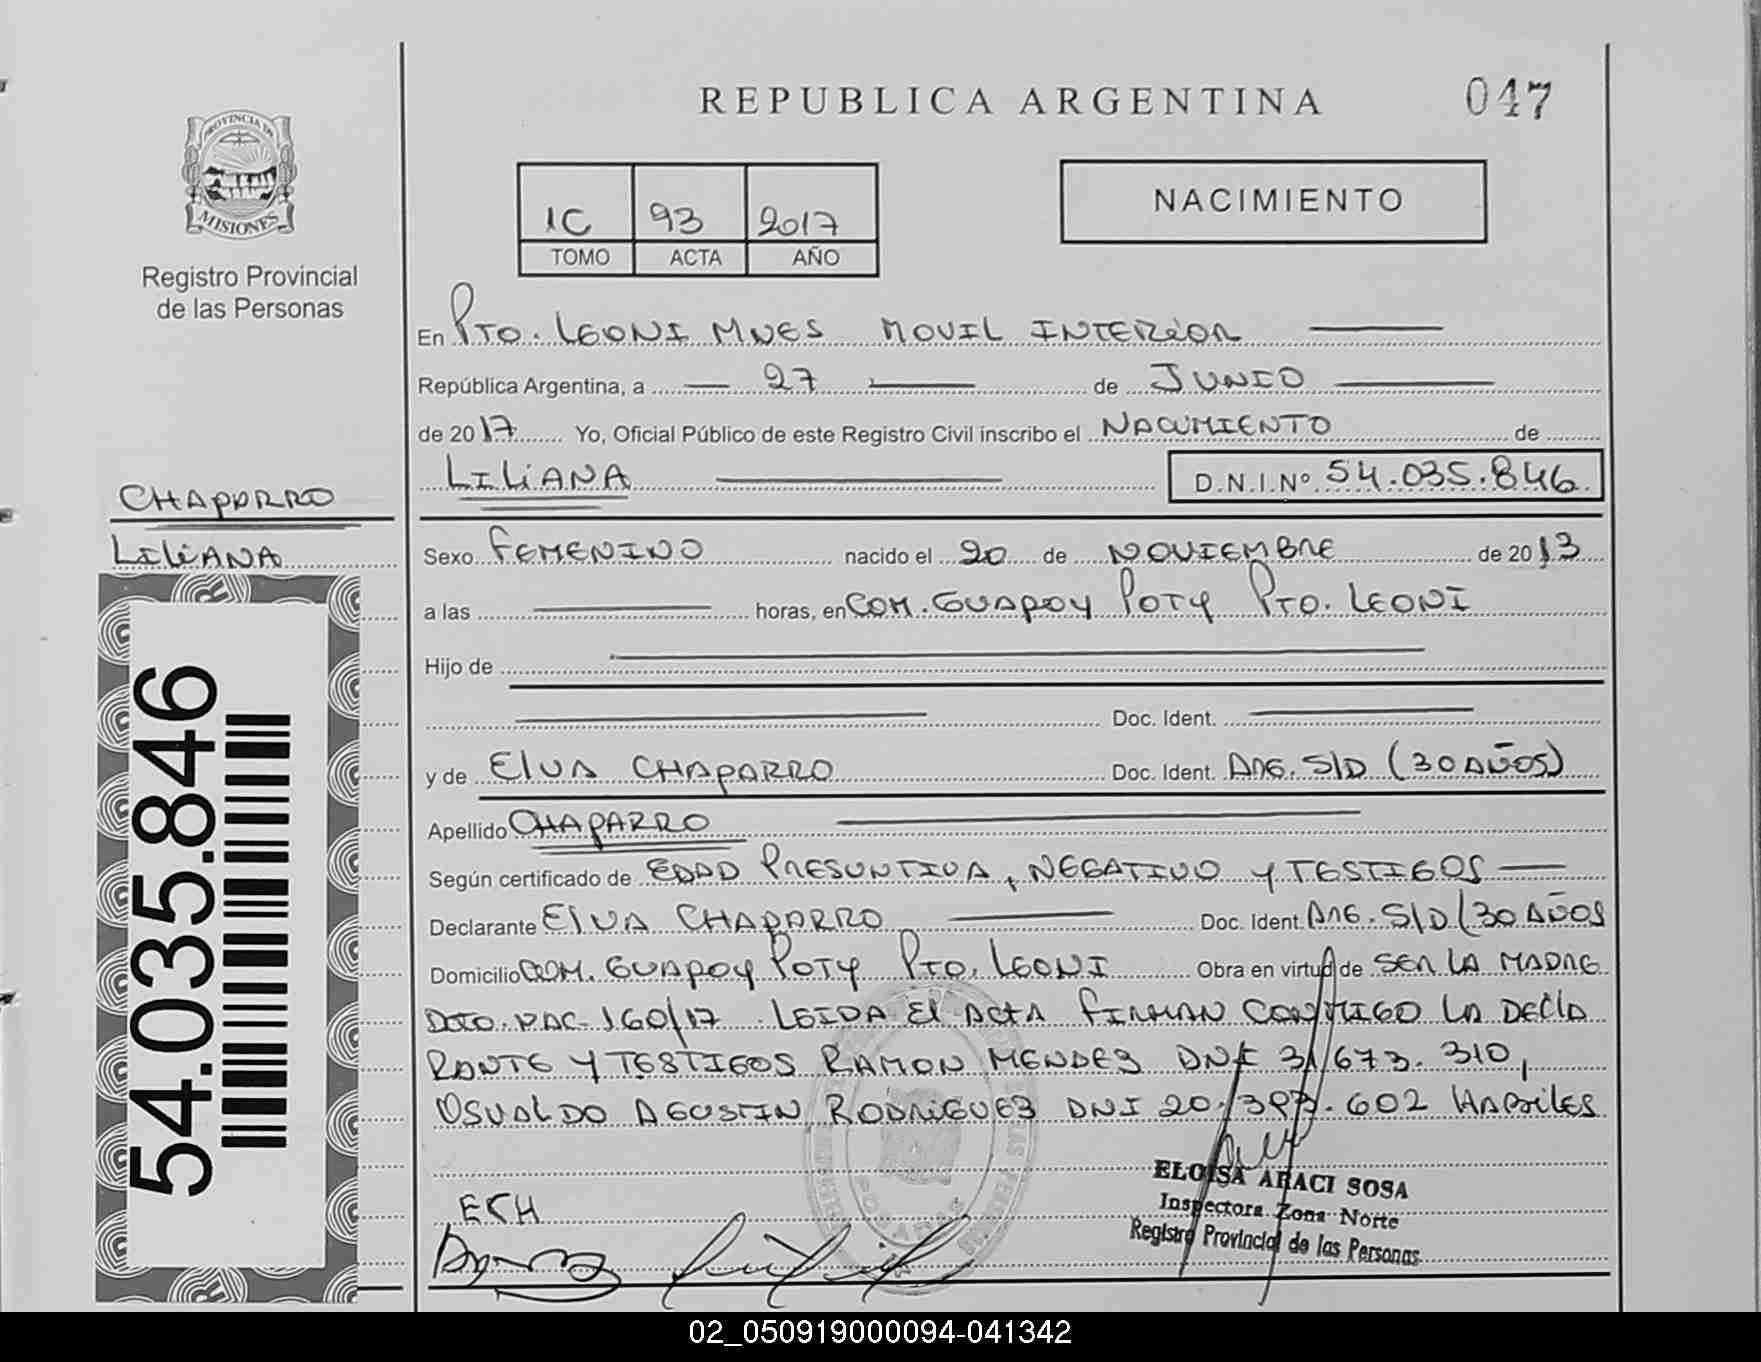 REPUBLICA ARGENTINA
047
PROVINCIA DE
MISIONES
Registro Provincial
de las Personas
1C 93 2017
TOMO ACTA AÑO
NACIMIENTO
En Pto. LEONI MNES MOVIL INTERIOR
República Argentina, a 27 de JUNIO
de 2017 Yo, Oficial Público de este Registro Civil inscribo el NACIMIENTO de
LILIANA D.N.I.Nº 54.035.846
CHAPARRO
LILIANA
54.035.846
Sexo FEMENINO nacido el 20 de NOVIEMBRE de 2013
a las horas, en COM. GUAPOY POTY PTO. LEONI
Hijo de
Doc. Ident.
y de ElVA CHAPARRO Doc. Ident. ARG. S/D (30 AÑOS)
Apellido CHAPARRO
Según certificado de EDAD PRESUNTIVA, NEGATIVO Y TESTIGOS
Declarante ElVA CHAPARRO Doc. Ident. ARG. S/D (30 AÑOS
Domicilio COM. GUAPOY POTY PTO. LEONI Obra en virtud de SER LA MADRE
160/17 LEIDA El ACTA FIRMAN CONMIGO LA DECLA
RANTE Y TESTIGOS RAMON MENDES DNI 31/673.310,
OSUALDO AGUSTIN RODRIGUES DNI 20.393.602 HABILES
ELOISA ARACI SOSA
Inspectora Zona Norte
Registro Provincial de las Personas
ECH
POSADAS
02_050919000094-041342